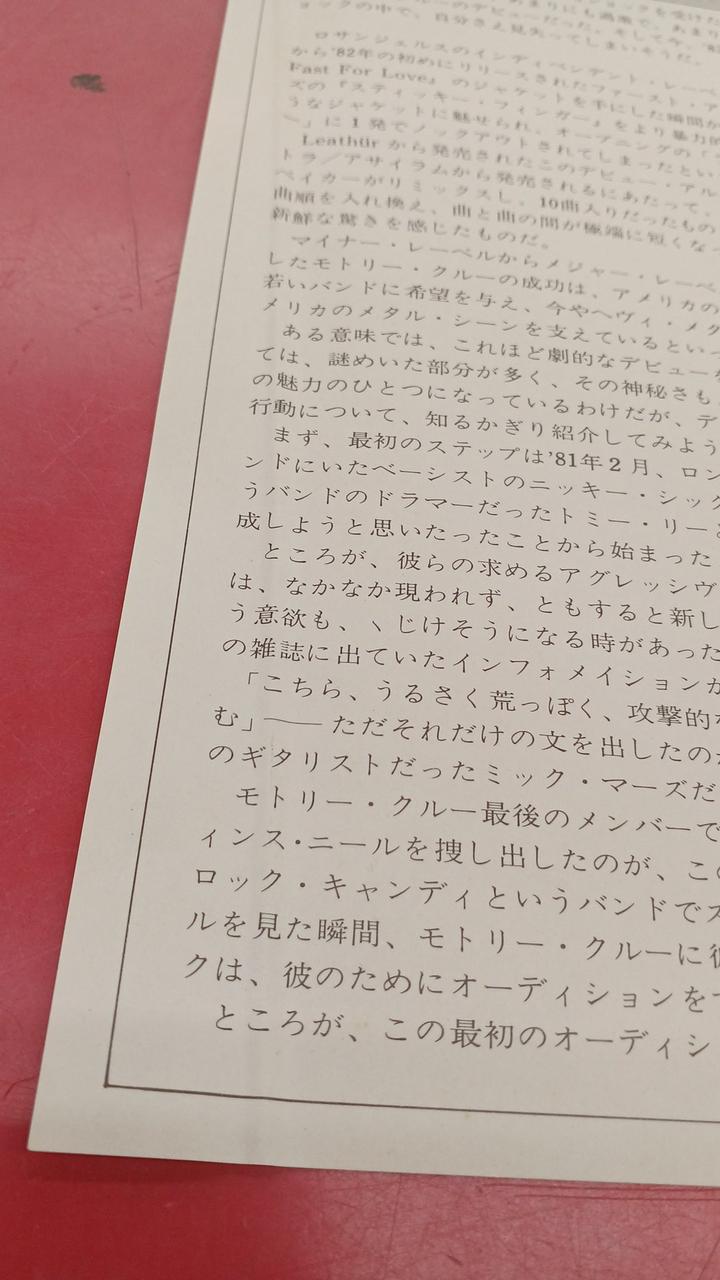 ョックの中で、自分さえ見失ってしまいそうだ。
ロサンジェルスのインディペンデント・レーベ
から'82年の初めにリリースされたファースト・ア
Fast For Love』のジャケットを手にした瞬間か
ズの『スティッキー・フィンガー』をより暴力的
うなジャケットに魅せられ、オープニングの「
ー」に1発でノックアウトされてしまったとい
Leathürから発売されたこのデビュー・アル
トラ／アサイラムから発売されるにあたって、
ベイカーがリミックスし、10曲入りだったもの
曲順を入れ換え、曲と曲の間が極端に短くな
新鮮な驚きを感じたものだ。
マイナー・レーベルからメジャー・レーベ
したモトリー・クルーの成功は、アメリカの
若いバンドに希望を与え、今やヘヴィ・メタ
メリカのメタル・シーンを支えているといっ
ある意味では、これほど劇的なデビューを
ては、謎めいた部分が多く、その神秘さも
の魅力のひとつになっているわけだが、デ
行動について、知るかぎり紹介してみよう
まず、最初のステップは'81年2月、ロン
ンドにいたベーシストのニッキー・シック
うバンドのドラマーだったトミー・リーと
成しようと思いたったことから始まった
ところが、彼らの求めるアグレッシヴ
は、なかなか現われず、ともすると新し
う意欲も、ヽじけそうになる時があった
の雑誌に出ていたインフォメイションが
「こちら、うるさく荒っぽく、攻撃的な
む」――ただそれだけの文を出したのが
のギタリストだったミック・マーズだ
モトリー・クルー最後のメンバーで
ィンス・ニールを捜し出したのが、この
ロック・キャンディというバンドでス
ルを見た瞬間、モトリー・クルーに彼
クは、彼のためにオーディションをす
ところが、この最初のオーディシ